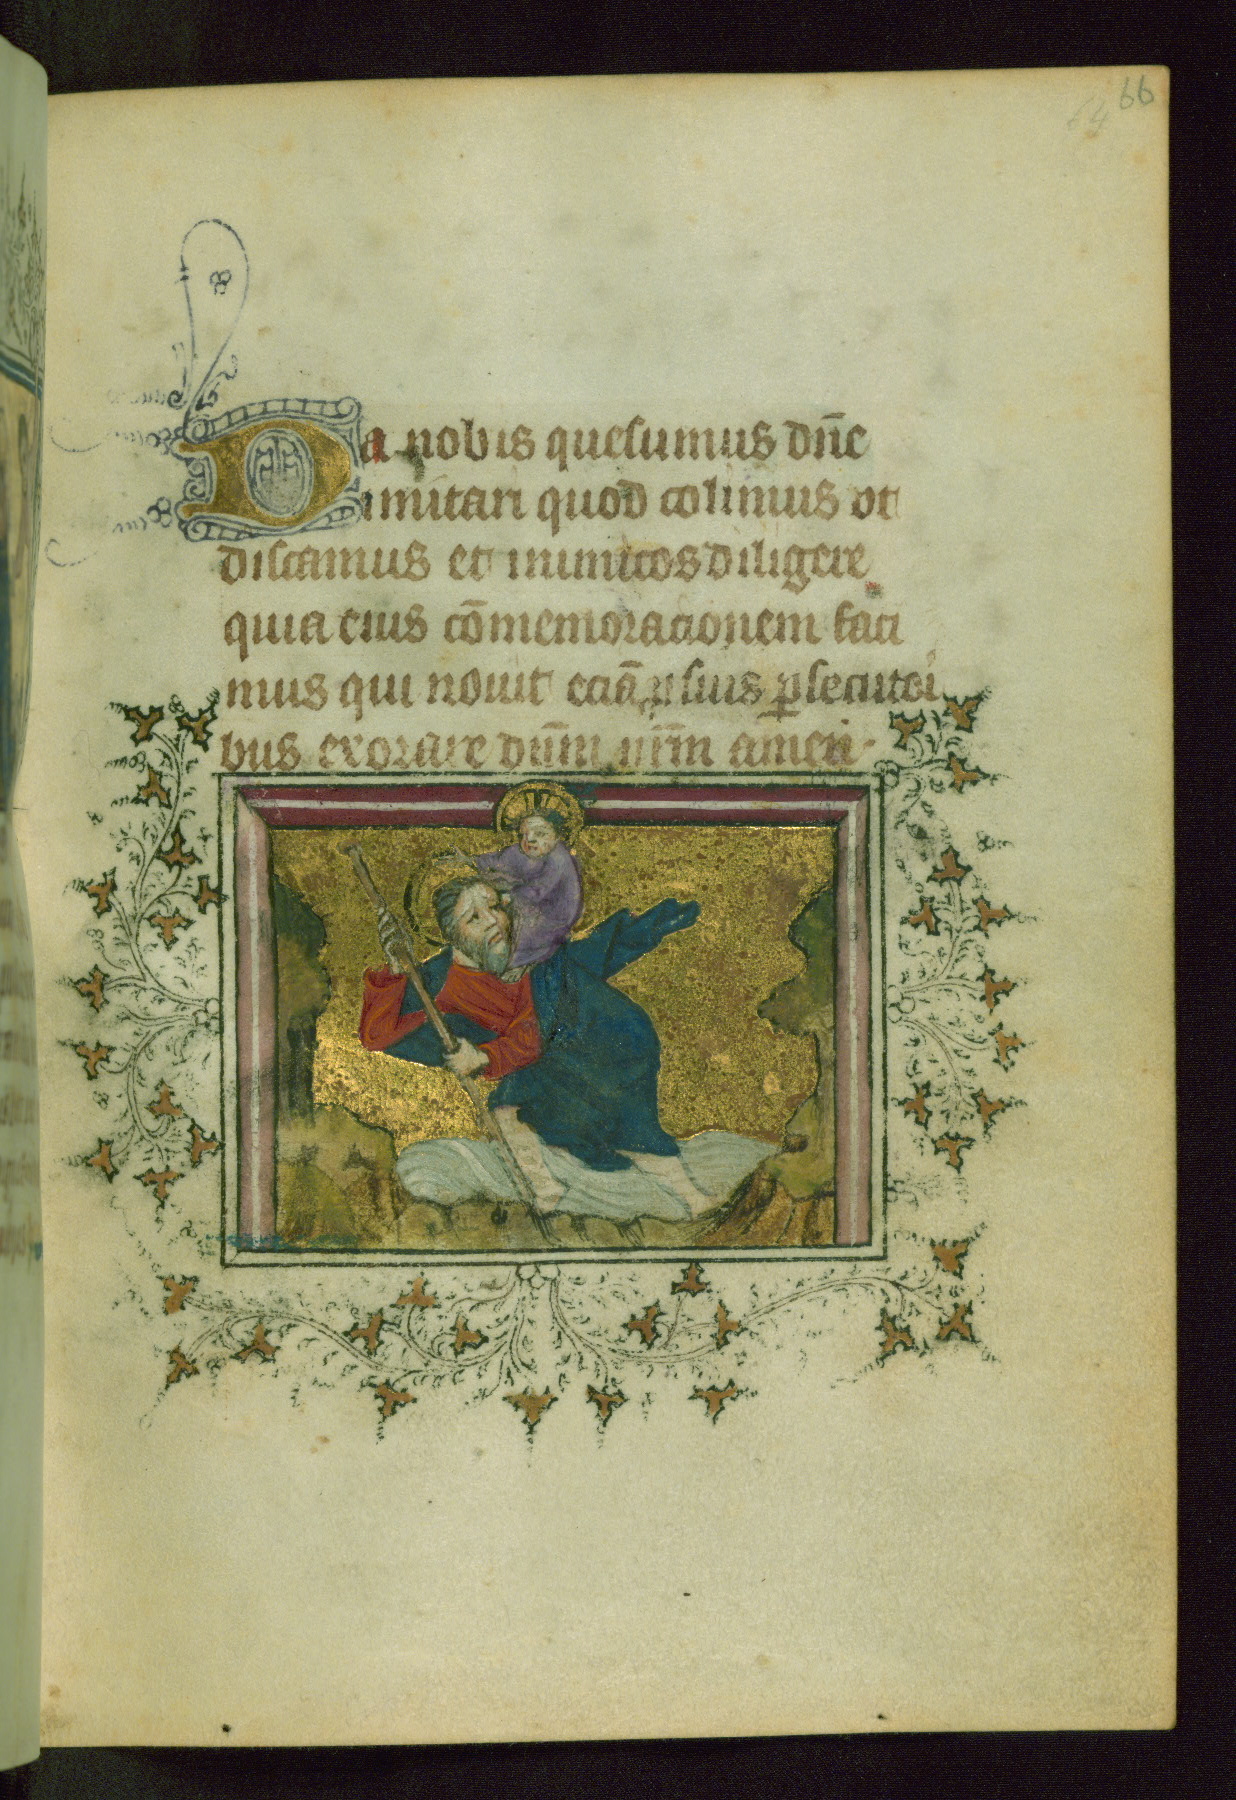 64 66
Da nobis quesumus dn̄e
imitari quod colimus vt
discamus et inimicos diligere
quia eius cōmemoracionem faci
mus qui nouit eciā suis ꝑsecutori
bus exorare dn̄m nr̄m amen